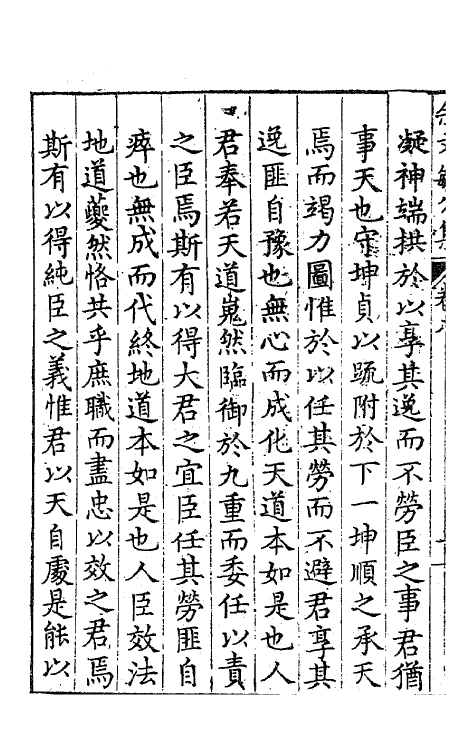 凝神端拱於以享其逸而不勞臣之事君猶
事天也守坤貞以䟽附於下一坤順之承天
焉而竭力圖惟於以任其勞而不避君享其
逸匪自豫也無心而成化天道本如是也人
君奉若天道嵬然臨御於九重而委任以責
之臣焉斯有以得大君之宜臣任其勞匪自
瘁也無成而代終地道本如是也人臣效法
地道夔然恪共乎庶職而盡忠以效之君焉
斯有以得純臣之義惟君以天自處是能以